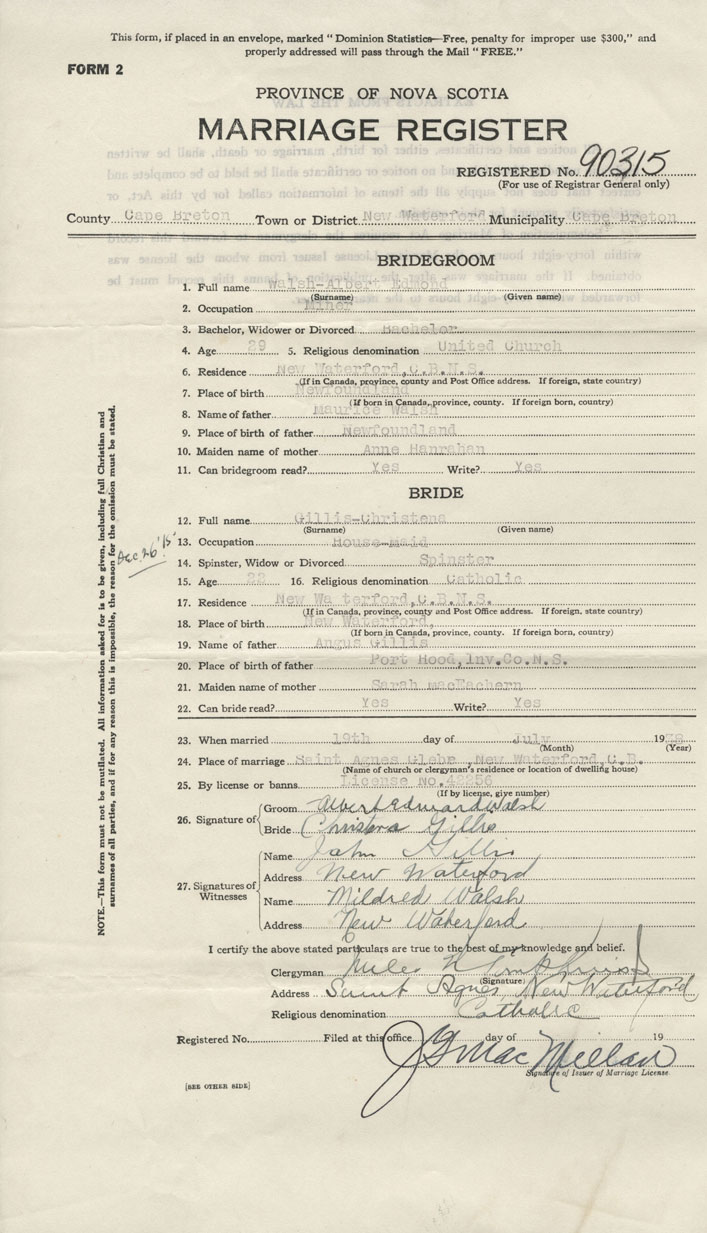 This form, if placed in an envelope, marked "Dominion Statistics—Free, penalty for improper use $300," and
properly addressed will pass through the Mail "FREE."
FORM 2
PROVINCE OF NOVA SCOTIA
MARRIAGE REGISTER
REGISTERED No. 90315
(For use of Registrar General only)
County Cape Breton Town or District New Waterford Municipality Cape Breton
BRIDEGROOM
1. Full name Walsh-Albert Edmond
(Surname) (Given name)
2. Occupation Miner
3. Bachelor, Widower or Divorced Bachelor
4. Age 29 5. Religious denomination United Church
6. Residence New Waterford, C.B.N.S.
(If in Canada, province, county and Post Office address. If foreign, state country)
7. Place of birth Newfoundland
(If born in Canada, province, county. If foreign born, country)
8. Name of father Maurice Walsh
9. Place of birth of father Newfoundland
10. Maiden name of mother Anne Hanrahan
11. Can bridegroom read? Yes Write? Yes
BRIDE
12. Full name Gillis-Christena
(Surname) (Given name)
13. Occupation House-maid
14. Spinster, Widow or Divorced Spinster
15. Age 22 16. Religious denomination Catholic
17. Residence New Wa terford, C.B.N.S.
(If in Canada, province, county and Post Office address. If foreign, state country)
18. Place of birth New Waterford,
(If born in Canada, province, county. If foreign born, country)
19. Name of father Angus Gillis
20. Place of birth of father Port Hood, Inv.Co.N.S.
21. Maiden name of mother Sarah macEachern
22. Can bride read? Yes Write? Yes
23. When married 19th day of July 19
(Month) (Year)
24. Place of marriage Saint Agnes Glebe, New Waterford, C.B.
(Name of church or clergyman's residence or location of dwelling house)
25. By license or banns License No. 42256
(If by license, give number)
26. Signature of
Groom Albert Edmund Walsh
Bride Christena Gillis
27. Signatures of Witnesses
Name John Gillis
Address New Waterford
Name Mildred Walsh
Address New Waterford
I certify the above stated particulars are true to the best of my knowledge and belief.
Clergyman
(Signature)
Address Saint Agnes, New Waterford
Religious denomination Catholic
Registered No. Filed at this office day of 19
J G MacMillan
Signature of Issuer of Marriage License
[SEE OTHER SIDE]
NOTE.—This form must not be mutilated. All information asked for is to be given, including full Christian and
surnames of all parties, and if for any reason this is impossible, the reason for the omission must be stated.
Dec. 26 '15